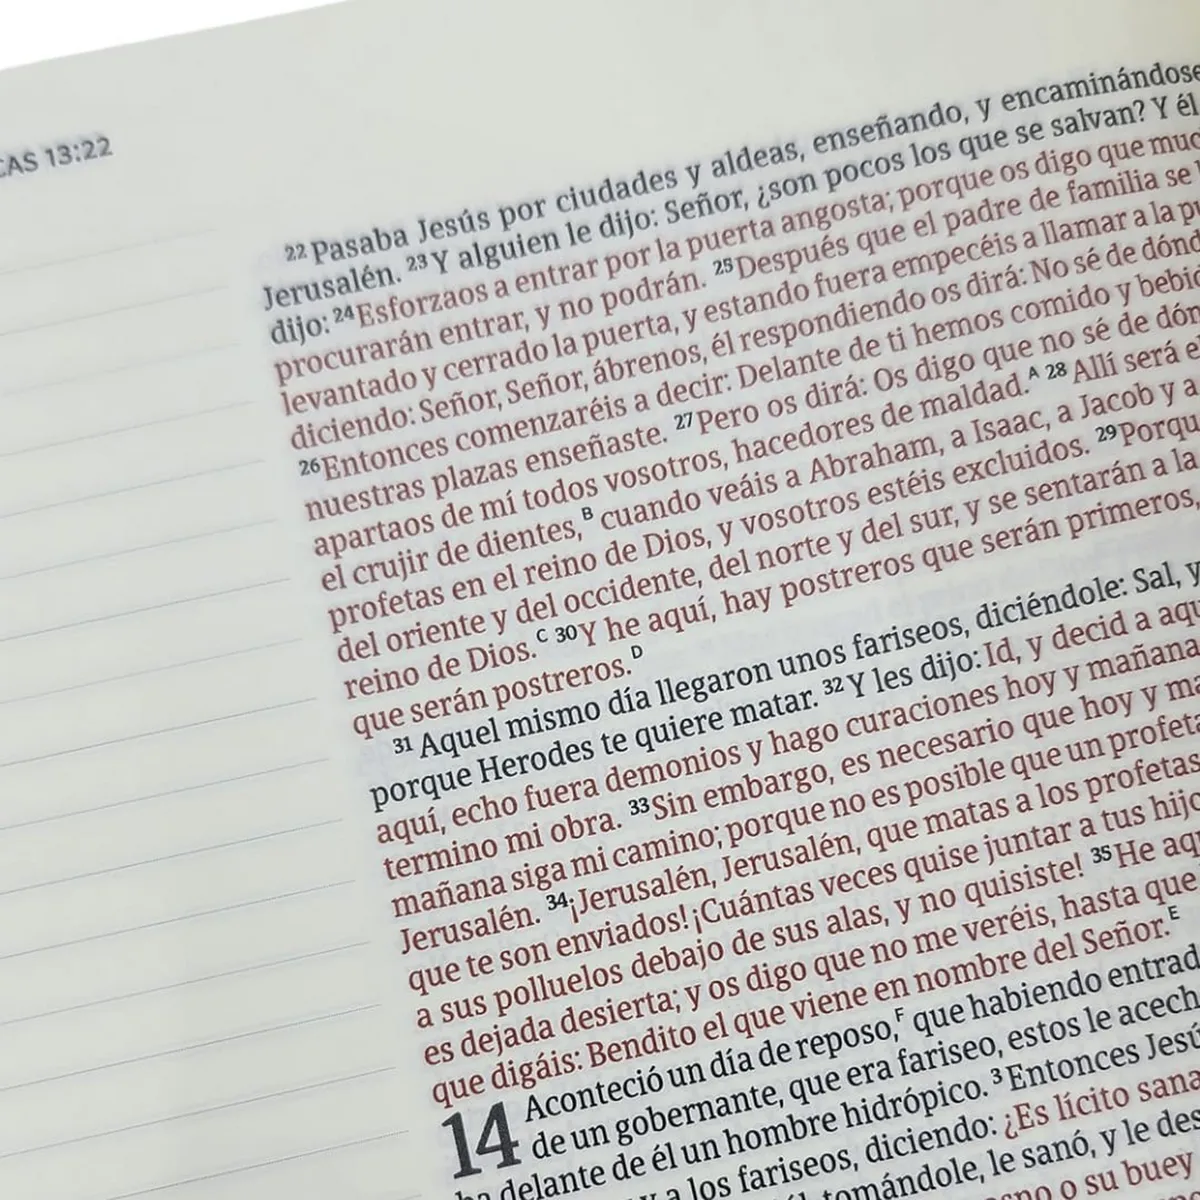 CAS 13:22
22 Pasaba Jesús por ciudades y aldeas, enseñando, y encaminándose
Jerusalén. 23 Y alguien le dijo: Señor, ¿son pocos los que se salvan? Y él
dijo: 24 Esforzaos a entrar por la puerta angosta; porque os digo que muc
procurarán entrar, y no podrán. 25 Después que el padre de familia se
levantado y cerrado la puerta, y estando fuera empecéis a llamar a la pu
diciendo: Señor, Señor, ábrenos, él respondiendo os dirá: No sé de dónd
26 Entonces comenzaréis a decir: Delante de ti hemos comido y bebid
nuestras plazas enseñaste. 27 Pero os dirá: Os digo que no sé de dón
apartaos de mí todos vosotros, hacedores de maldad.A 28 Allí será el
el crujir de dientes,B cuando veáis a Abraham, a Isaac, a Jacob y a
profetas en el reino de Dios, y vosotros estéis excluidos. 29 Porqu
del oriente y del occidente, del norte y del sur, y se sentarán a la
reino de Dios.C 30 Y he aquí, hay postreros que serán primeros,
que serán postreros.D
31 Aquel mismo día llegaron unos fariseos, diciéndole: Sal, y
porque Herodes te quiere matar. 32 Y les dijo: Id, y decid a aqu
aquí, echo fuera demonios y hago curaciones hoy y mañana
termino mi obra. 33 Sin embargo, es necesario que hoy y ma
mañana siga mi camino; porque no es posible que un profeta
Jerusalén. 34 ¡Jerusalén, Jerusalén, que matas a los profetas
que te son enviados! ¡Cuántas veces quise juntar a tus hijo
a sus polluelos debajo de sus alas, y no quisiste! 35 He aqu
es dejada desierta; y os digo que no me veréis, hasta que
que digáis: Bendito el que viene en nombre del Señor.E
14 Aconteció un día de reposo,F que habiendo entrad
de un gobernante, que era fariseo, estos le acech
delante de él un hombre hidrópico. 3 Entonces Jesú
y a los fariseos, diciendo: ¿Es lícito sana
tomándole, le sanó, y le des
o su buey